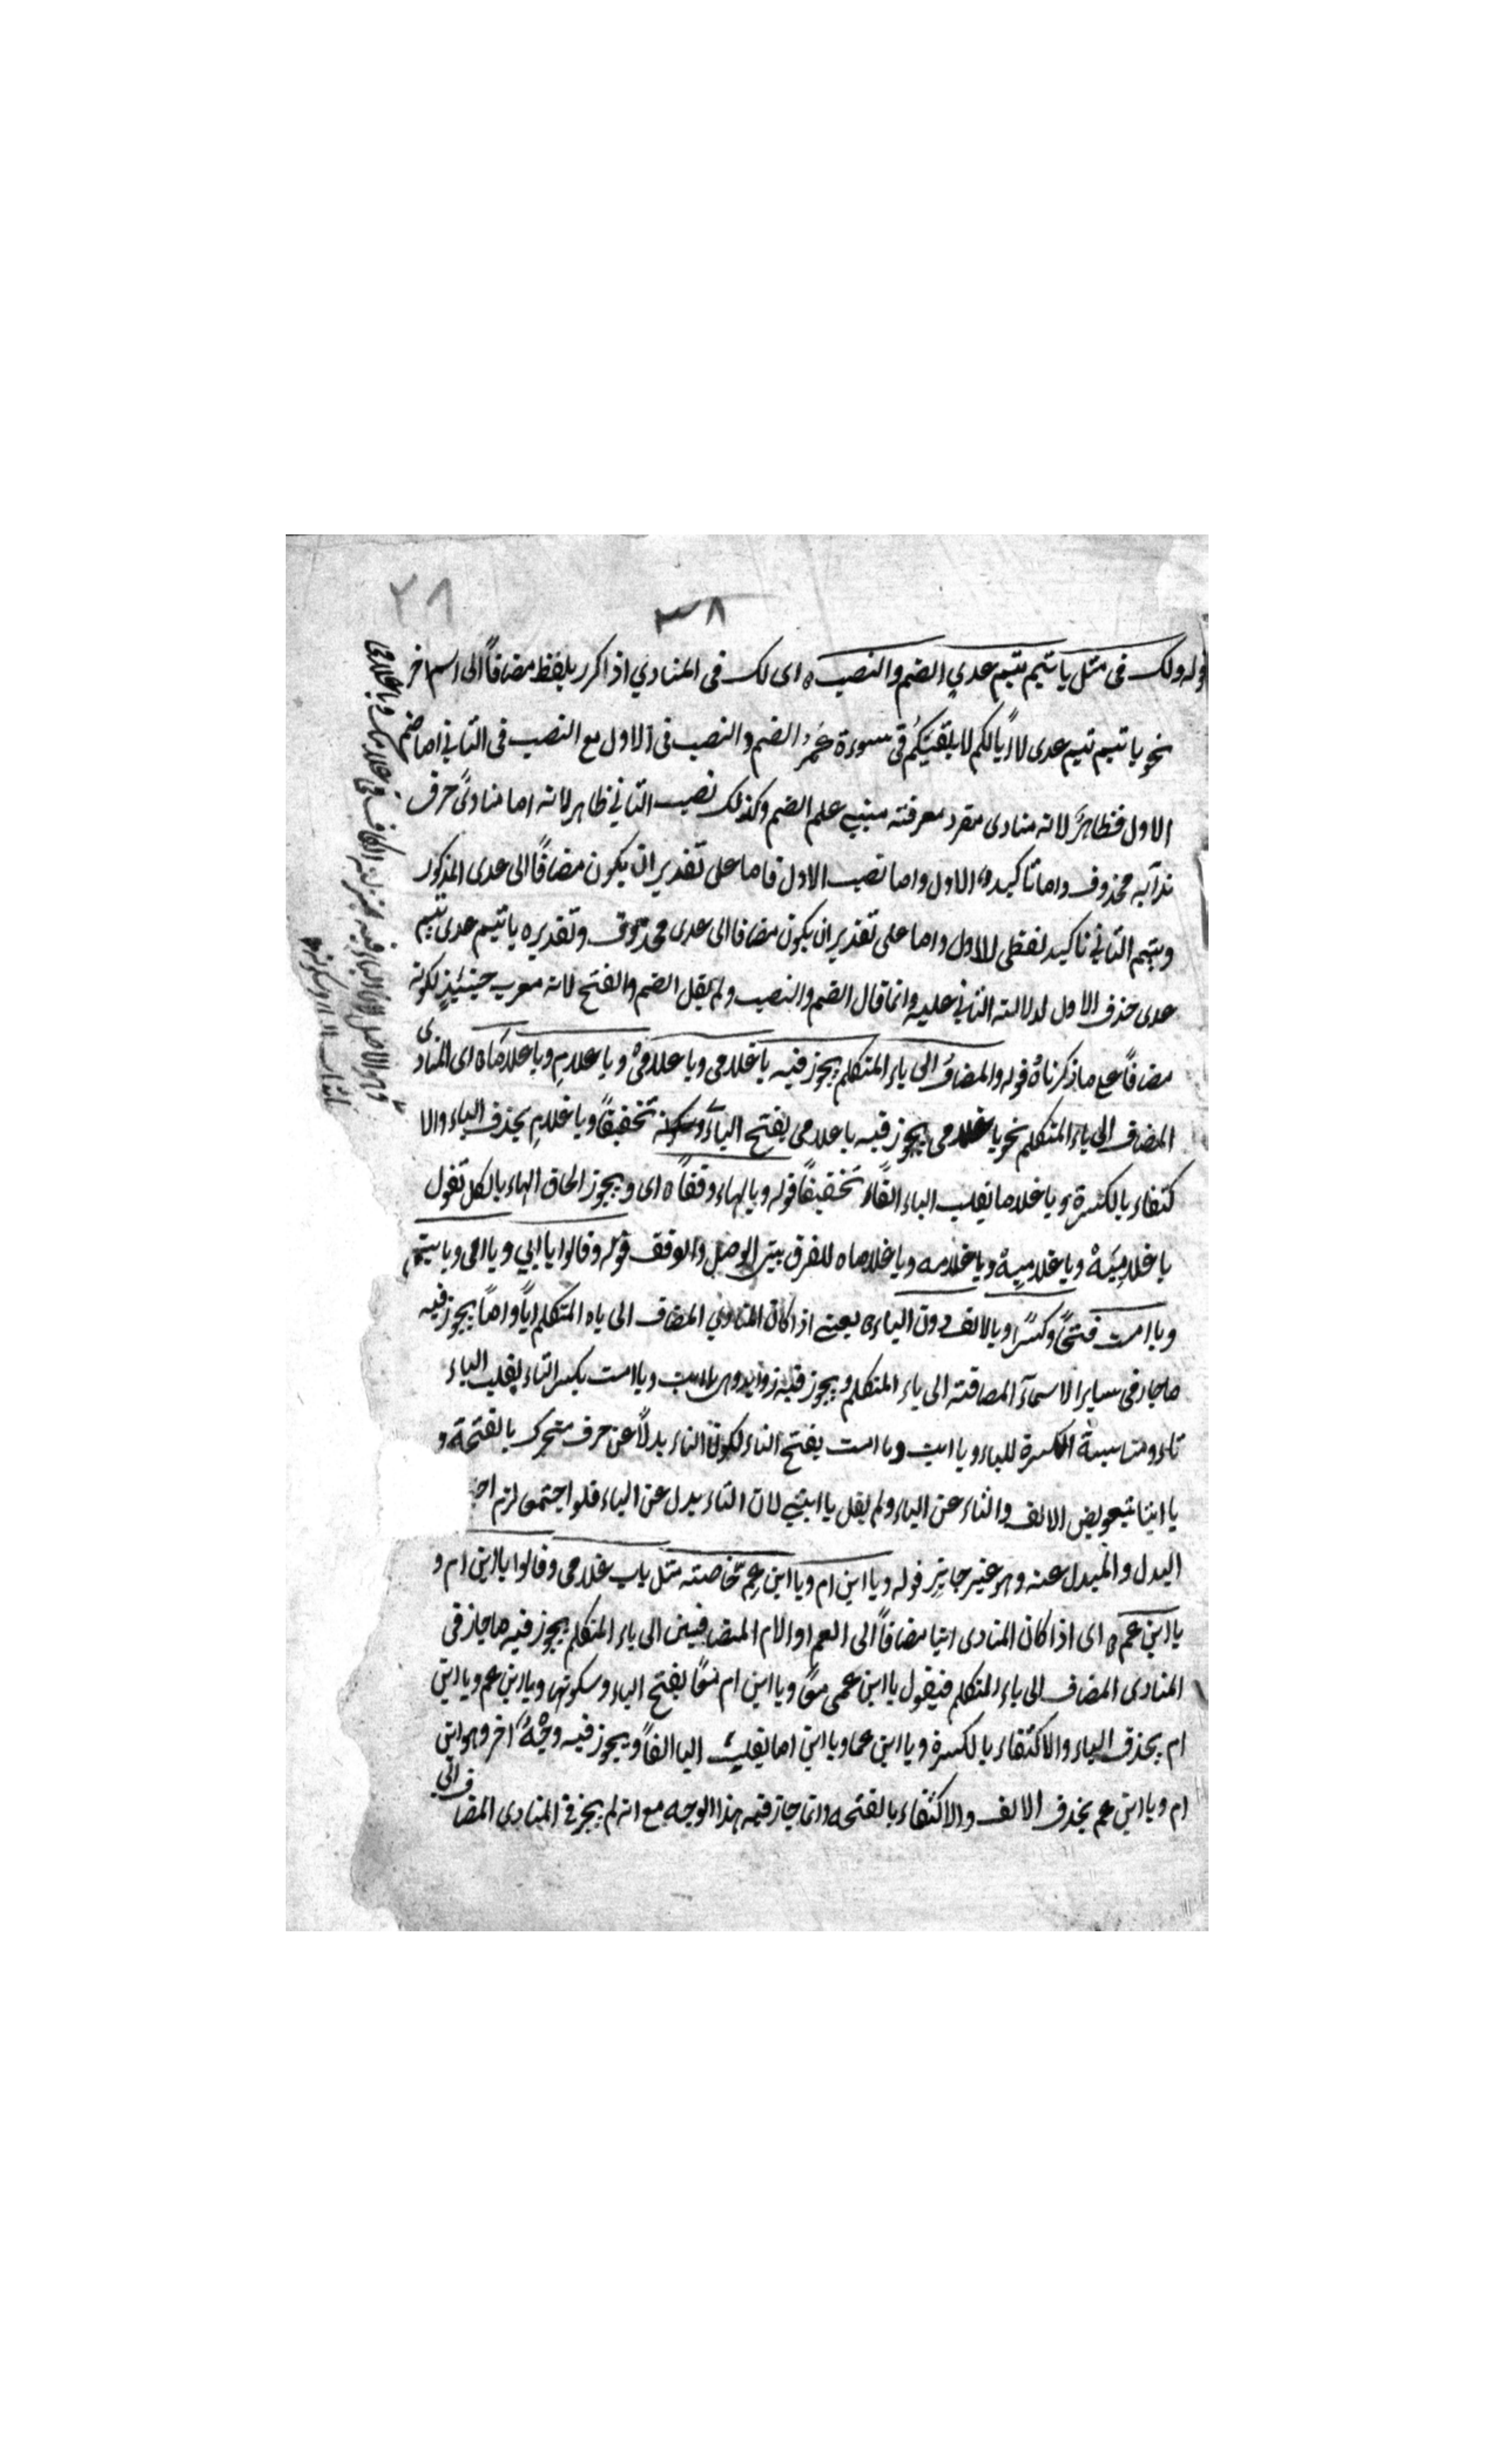 ٢٨
٣٨
قوله ولك فى مثل يا تيم تيم عدي الضم والنصب ه اى لك فى المنادي اذا كرر بلفظ مضافاً الى اسم اخر
نحو يا تيم تيم عدى لا ابالكم لا يلقينكم فى سوءة عمرُ الضم والنصب فى الاول مع النصب فى الثاني اما ضم
الاول فظاهرً لانه منادى مفرد معرفته مبنى علم الضم وكذلك نصب الثاني ظاهر لانه اما منادىً حرف
ندآيه محذوف واما تاكيد الاول واما نصب الاول فاما على تقدير ان يكون مضافاً الى عدى المذكور
وتيم الثاني تاكيد لفظى للاول واما على تقدير ان يكون مضافا الى عدى محذوف وتقديره يا تيم عدى تيم
عدى حذف الاول لدلالته الثاني عليه وانما قال الضم والنصب ولم يقل الضم والفتح لانه معرب حينئيذٍ لكونه
مضافاً ع ما ذكرناهُ قوله والمضافُ الى ياء المتكلم يجوز فيه يا غلامى ويا غلامىْ ويا غلامِ ويا غلاماَه اى المنادى
المضاف الى ياء المتكلم نحو يا غلامى يجوز فيه يا غلامى بفتح الياء وسكونه تخفيفاً ويا غلامِ بحذف الياء والا
كتفاء بالكسرة ويا غلاما بقلب الياء الفاً تخفيفاً قوله وبالهاء وقفاً ه اى ويجوز الحاق الهاء بالكل تقول
يا غلامِيَهْ ويا غلامِيهْ ويا غلامه ويا غلاماه للفرق بين الوصل والوقف قوله وقالوا يا ابي ويا امى ويا ابت
ويا امت فتحاً وكسرًا وبالالف دون الياء ه يعنى اذا كان المنادي المضاف الى ياء المتكلم اباً واماً يجوز فيه
ما جاز فى ساير الاسمآء المضافته الى ياء المتكلم ويجوز فيه زوايد وهى يا ابت ويا امت بكسر التاء بقلب الياء
تاء ومناسبة الكسرة للياء ويا ابت ويا امت بفتح التاء لكون التاء بدلاً عن حرف متحرك بالفتحة و
يا ابتا بتعويض الالف والتاء عن الياء ولم يقل يا ابتي لان التاء بدل عن الياء فلو اجتمعى لزم
البدل والمبدل عنه وهو غير جايزٍ قوله ويا ابن ام ويا ابن عم خاصته مثل باب غلامى وقالوا يا ابن ام و
يا ابن عم ه اى اذا كان المنادى ابنا مضافاً الى العم او الام المضافين الى ياء المتكلم يجوز فيه ما جاز فى
المنادى المضاف الى ياء المتكلم فيقول يا ابن عمى ويا ابن ام بفتح الياء وسكونها ويا ابن عم ويا ابن
ام بحذف الياء والاكتفاء بالكسرة ويا ابن عما ويا ابن اما بقلب اليا الفاً ويجوز فيه وجْهٌ آخر وهو ابن
ام ويا ابن عم بحذف الالف والاكتفاء بالفتحه وانما جاز فيه هذا الوجه مع انه لم يجز فى المنادى المضاف الى